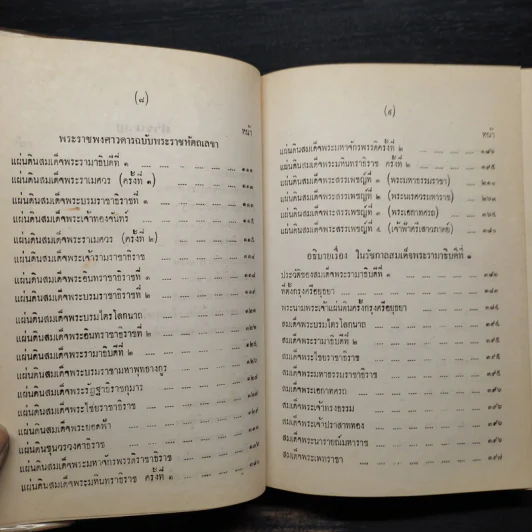 (๘)
หน้า
พระราชพงศาวดารฉบับพระราชหัตถเลขา
แผ่นดินสมเด็จพระรามาธิบดีที่ ๑ ๑๑๑
แผ่นดินสมเด็จพระราเมศวร (ครั้งที่ ๑) ๑๑๓
แผ่นดินสมเด็จพระบรมราชาธิราชที่ ๑
แผ่นดินสมเด็จพระเจ้าทองจันทร์ ๑๑๕
แผ่นดินสมเด็จพระราเมศวร (ครั้งที่ ๒)
แผ่นดินสมเด็จพระเจ้ารามราชาธิราช
แผ่นดินสมเด็จพระอินทราชาธิราชที่ ๑
แผ่นดินสมเด็จพระบรมราชาธิราชที่ ๒
แผ่นดินสมเด็จพระบรมไตรโลกนาถ
แผ่นดินสมเด็จพระอินทราชาธิราชที่ ๒
แผ่นดินสมเด็จพระรามาธิบดีที่ ๒
แผ่นดินสมเด็จพระบรมราชามหาพุทธางกูร
แผ่นดินสมเด็จพระรัฏฐาธิราชกุมาร
แผ่นดินสมเด็จพระไชยราชาธิราช
แผ่นดินสมเด็จพระยอดฟ้า
แผ่นดินขุนวรวงศาธิราช
แผ่นดินสมเด็จพระมหาจักรพรรดิราชาธิราช
แผ่นดินสมเด็จพระมหินทราธิราช ครั้งที่ ๑
(๙)
หน้า
แผ่นดินสมเด็จพระมหาจักรพรรดิครั้งที่ ๒ ๑๘๖
แผ่นดินสมเด็จพระมหินทราธิราช ครั้งที่ ๒
แผ่นดินสมเด็จพระสรรเพชญ์ที่ ๑ (พระมหาธรรมราชา)
แผ่นดินสมเด็จพระสรรเพชญ์ที่ ๒ (พระนเรศวรมหาราช)
แผ่นดินสมเด็จพระสรรเพชญ์ที่ ๓ (พระเอกาทศรถ)
แผ่นดินสมเด็จพระสรรเพชญ์ที่ ๔ (เจ้าฟ้าศรีเสาวภาคย์)
อธิบายเรื่อง ในรัชกาลสมเด็จพระรามาธิบดีที่ ๑
ประวัติของสมเด็จพระรามาธิบดีที่ ๑
ที่ตั้งกรุงศรีอยุธยา
พระนามพระเจ้าแผ่นดินครั้งกรุงศรีอยุธยา
สมเด็จพระบรมไตรโลกนาถ
สมเด็จพระรามาธิบดีที่ ๒
สมเด็จพระไชยราชาธิราช
สมเด็จพระมหาธรรมราชาธิราช
สมเด็จพระเอกาทศรถ
สมเด็จพระเจ้าทรงธรรม ๓๙๖
สมเด็จพระเจ้าปราสาททอง ๓๙๖
สมเด็จพระนารายณ์มหาราช ๓๙๖
สมเด็จพระเพทราชา ๓๙๗